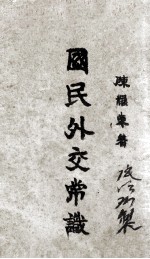 國民外交常識
陳耀東著